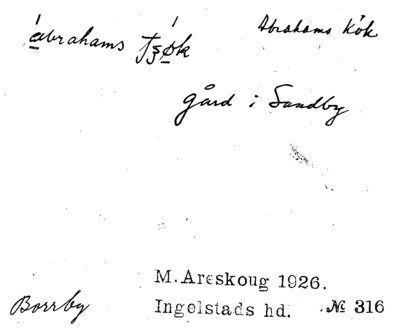 ábrahams tʒø̱k
Abrahams Kök
gård i Sandby
M. Areskoug 1926.
Borrby
Ingelstads hd. № 316